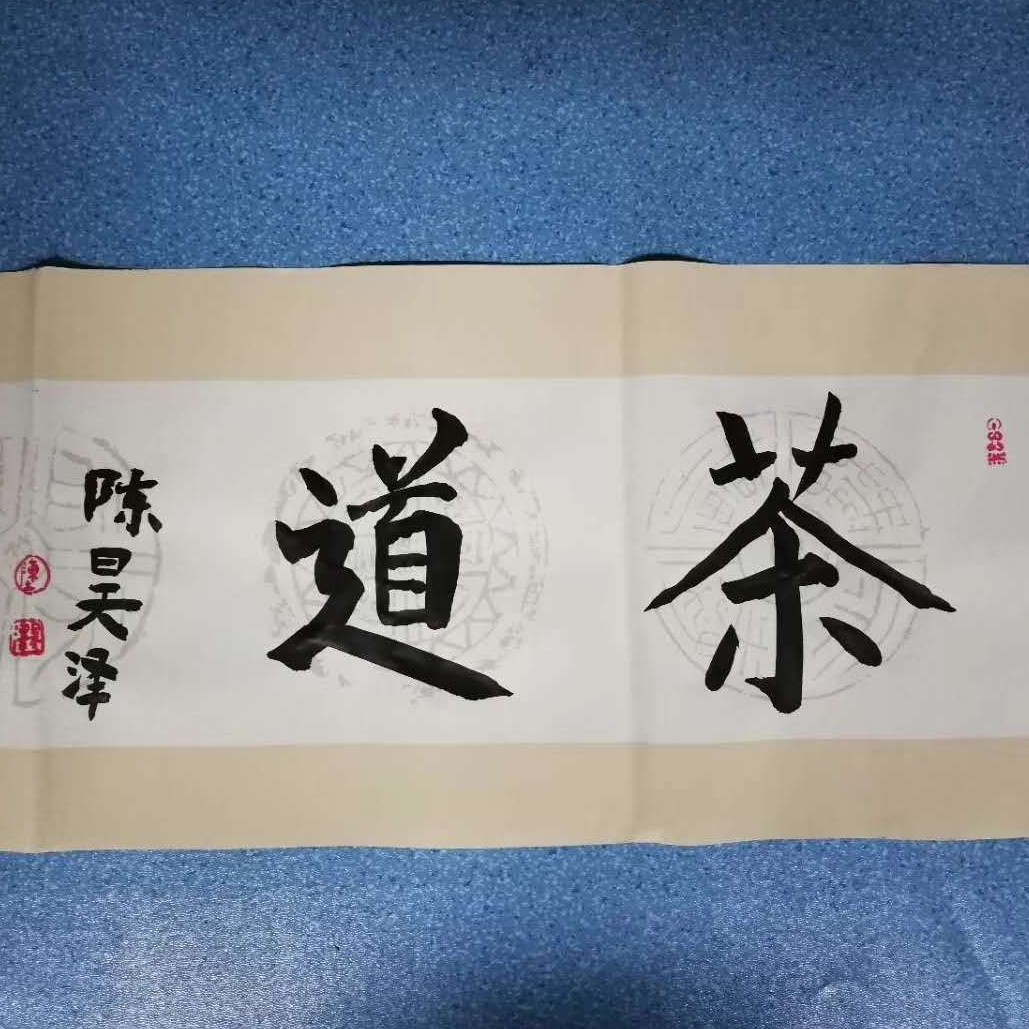 茶道
陈昊泽